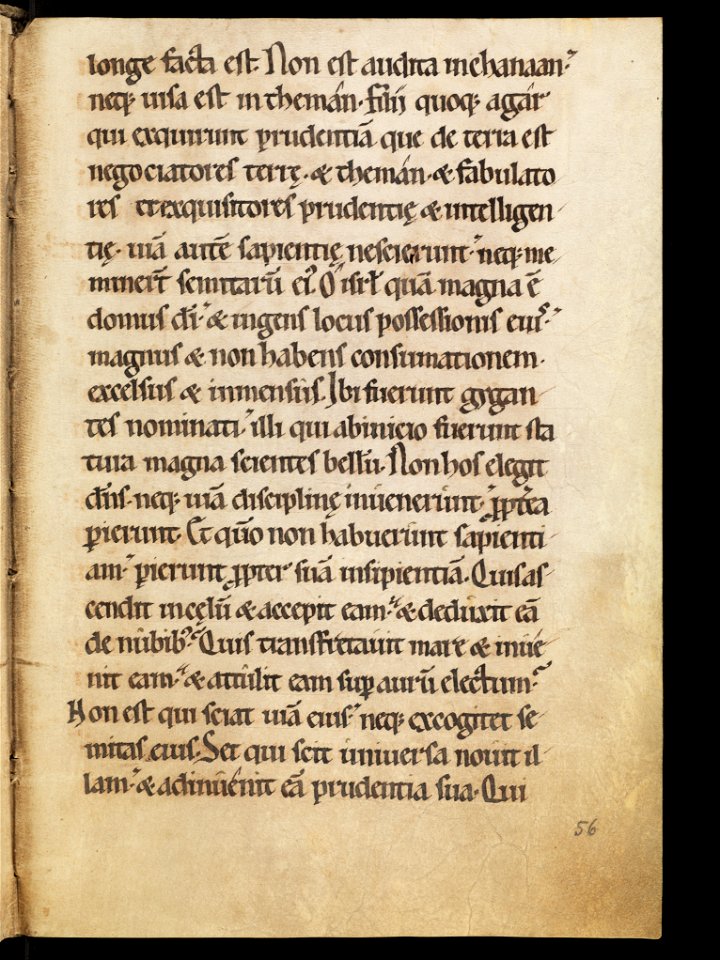 longe facta est. Non est audita inchanaan·
neq; uisa est in themán· Filii quoq; agár
qui exquirunt prudentiā que de terra est
negociatores terrę· & themán· & fabulato
res et exquisitores prudentię & intelligen
tię· uiā autē sapientię nescierunt· neq; me
minerꝰt semitarū ei᾽ O isrł quā magna ē
domus dī· & ingens locus possessionis eius·
magnus & non habens consumationem·
excelsus & inmensus. Ibi fuerunt gygan
tes nominati· illi qui abinicio fuerunt sta
tura magna scientes bellū. Non hos elegit
dn̄s· neq; uiā disciplinę inuenerunt· ꝓpt̄ea
ꝑierunt· Et qūo non habuerunt sapienti
am· ꝑierunt ꝓpter suā insipientiā. Quis as
cendit in cęlū & accepit eam· & deduxit eā
de nubib᾽· Quis transfretauit mare & inue
nit eam· & attulit eam sup̄ aurū electum·
Non est qui sciat uiā eius· neq; excogitet se
mitas eius. Set qui scit uniuersa nouit il
lam· & adinuenit eā prudentia sua· Qui
56